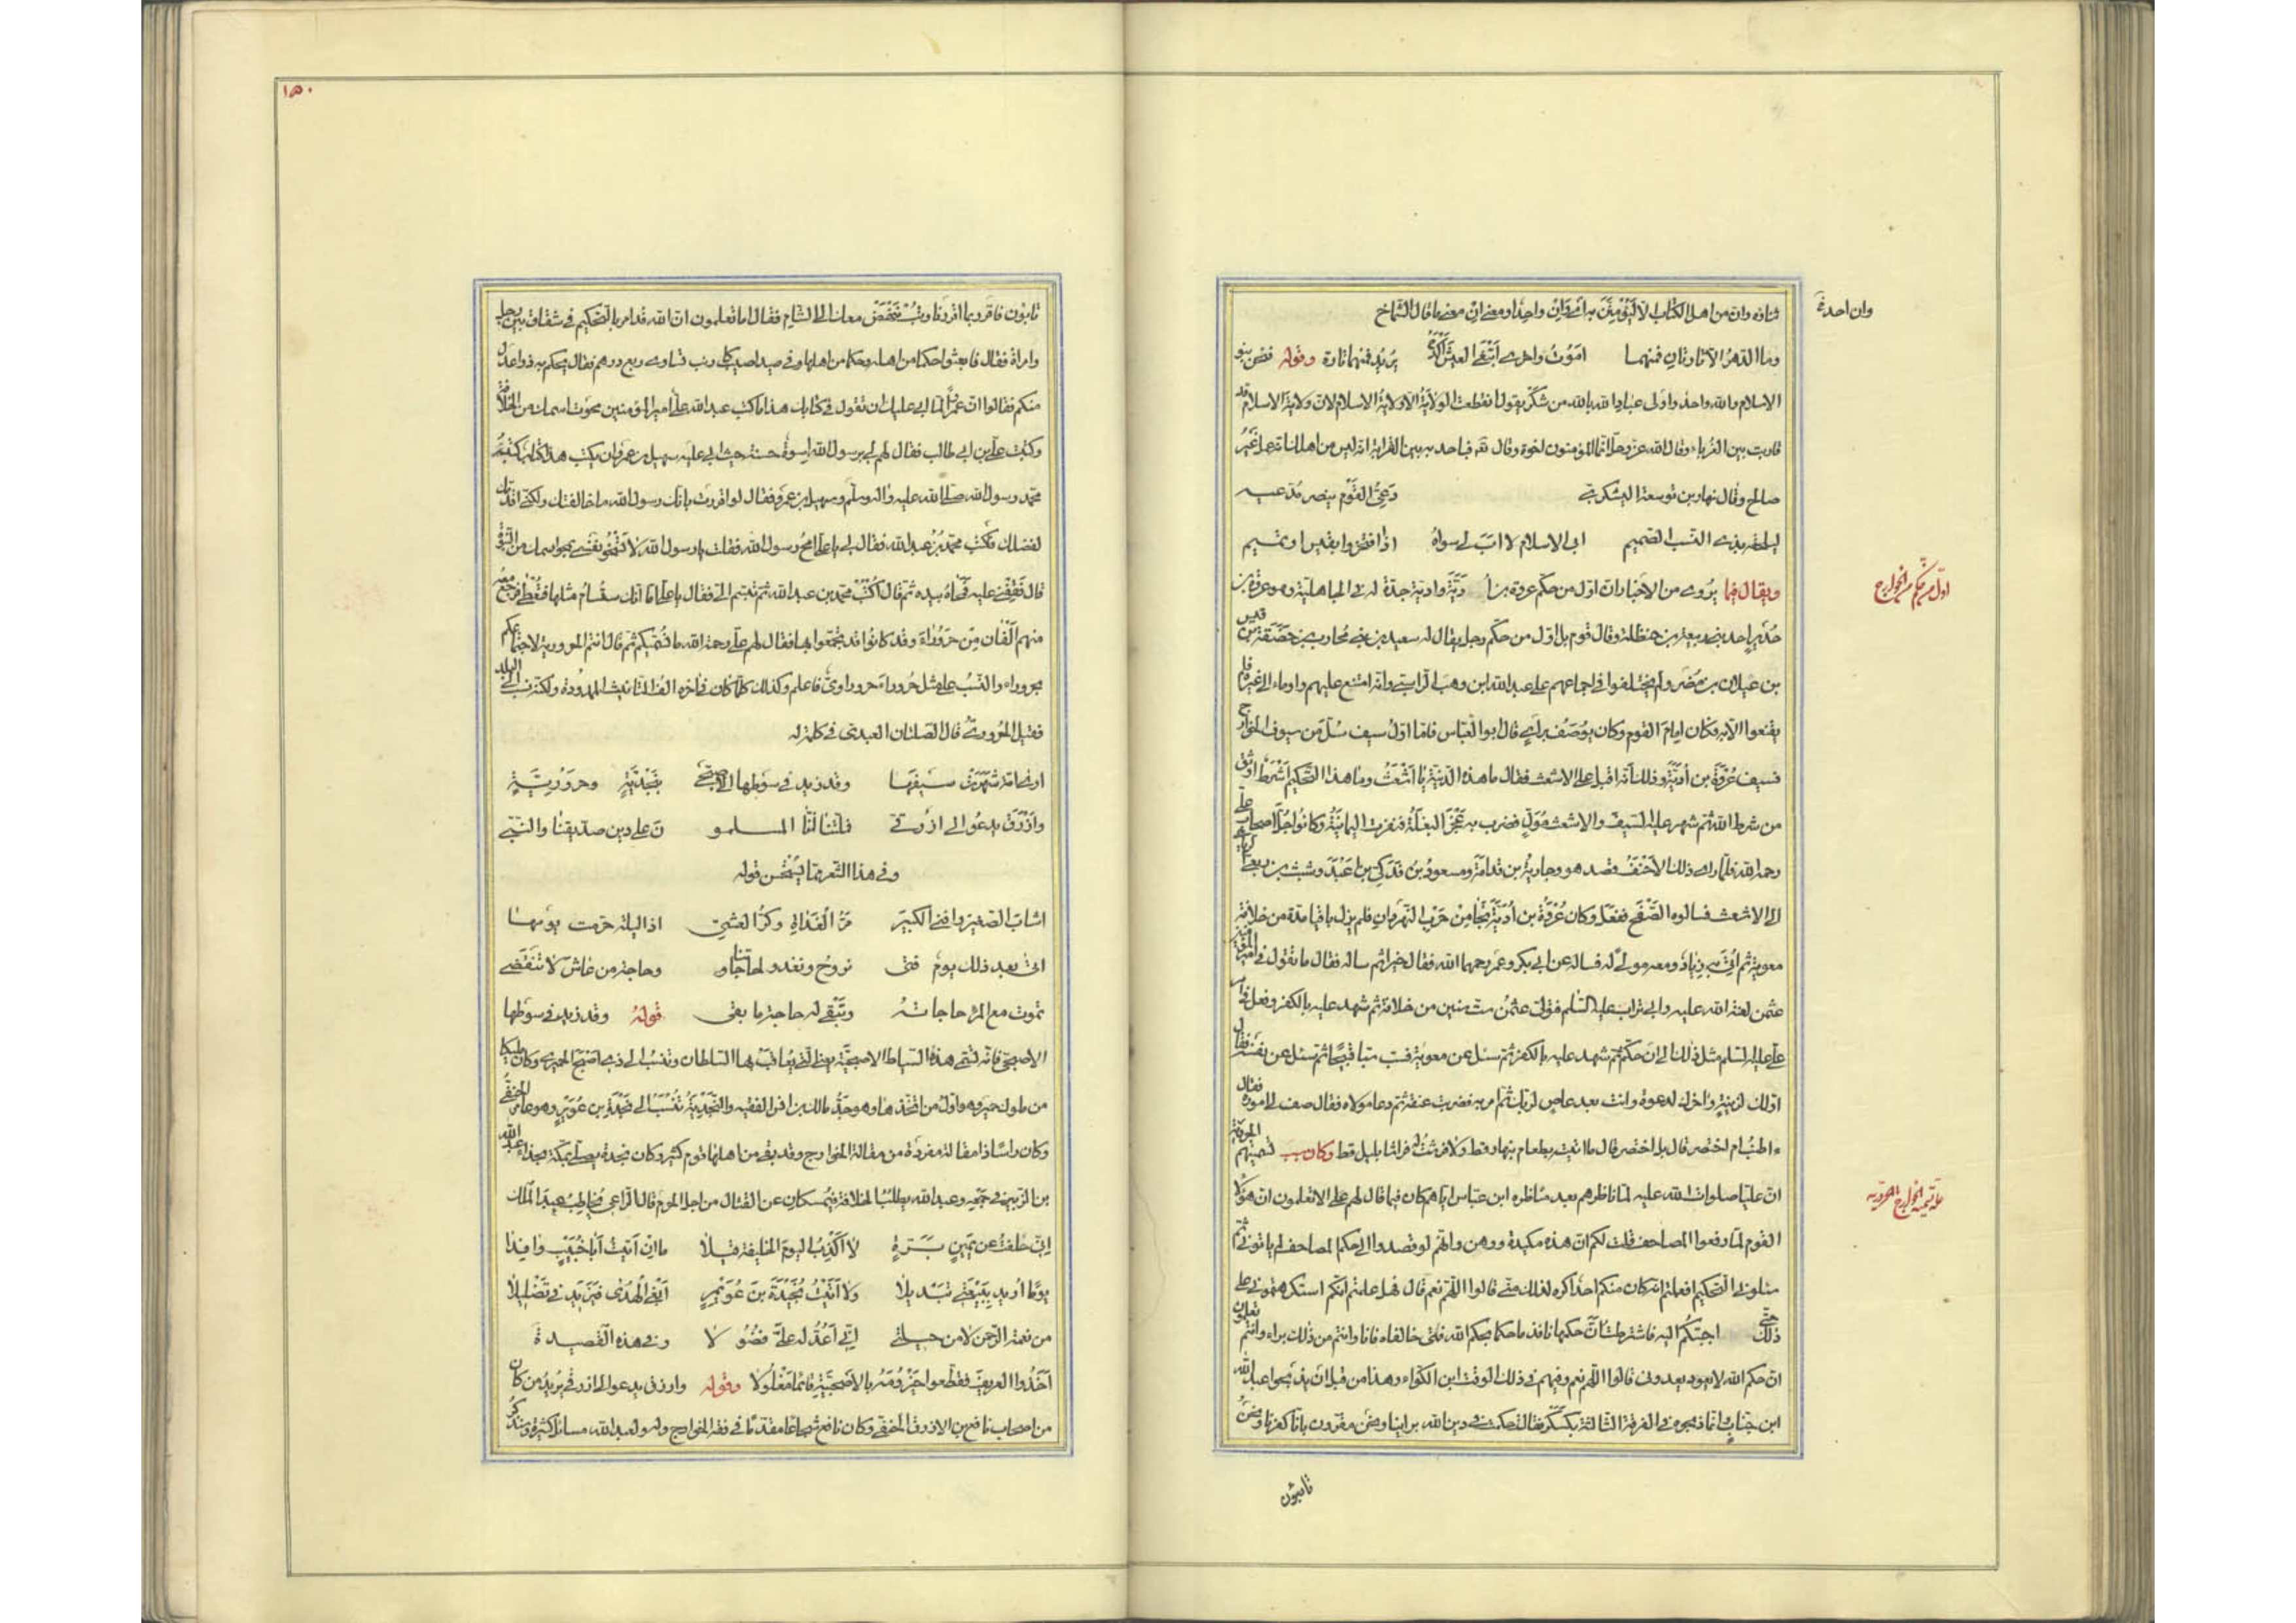 وان احدة
ثناؤه وان من اهل الكتاب الا ليؤمنن به اى وان واحد ومعنى ان معنى ما قال الشماخ
وما الدهر الا تارتان فمنهما اموت واخرى ابتغى العيش اكدح يريد فمنهما تارة وقوله فنحن بنو
الاسلام والله واحد واولى عباد الله بالله من شكر يقول انقطعت الولاية الا ولاية الاسلام لان ولاية الاسلام قد
قاربت بين الغرباء وقال الله عز وجل انما المؤمنون اخوة وقال فباعد به بين القرابة انه ليس من اهلك انه عمل غير
صالح وقال نهار بن توسعة اليشكرى دعى القوم ينصر مدعيه
ليلحقه بذى النسب الصميم ابى الاسلام لا اب لى سواه اذا افتخروا بقيس او تميم
ويقال فيما يروى من الاخبار ان اول من حكم عروة بن ادية وادية جدة له فى الجاهلية وهو عروة بن
اول من حكم من الخوارج
حدير احد بنى ربيعة بن حنظلة وقال قوم بل اول من حكم رجل يقال له سعيد من بنى محارب بن خصفة بن قيس
بن عيلان بن مضر ولم يختلفوا فى اجماعهم على عبد الله ابن وهب الراسبى وانه امتنع عليهم واوماء الى غيره فلم
يقنعوا الا به وكان امام القوم وكان يوصف براى قال ابو العباس فاما اول سيف سل من سيوف الخوارج
فسيف عروة بن ادية وذلك انه اقبل على الاشعث فقال ما هذه الدنية يا اشعث وما هذا التحكيم اشرط اوثق
من شرط الله ثم شهر عليه السيف والاشعث مول فضرب به عجز البغلة فنفرت اليمانية وكانوا جل اصحاب على
رحمه الله فلما راى ذلك الاحنف قصد هو وجارية بن قدامة ومسعود بن فدكى بن اعبد وشبث بن ربعى
الى الاشعث فسالوه الصفح ففعل وكان عروة بن ادية نجا من حرب النهروان فلم يزل باقيا مدة من خلافة
معوية ثم اتى به زياد ومعه مولى له فساله عن ابى بكر وعمر رحمهما الله فقال خيرا ثم ساله فقال ما تقول فى امير المؤمنين
عثمن لعنة الله عليه وابى تراب عليه السلم فتولى عثمن ست سنين من خلافته ثم شهد عليه بالكفر وفعل فى امر
على عليه السلم مثل ذلك الى ان حكم ثم شهد عليه بالكفر ثم سئل عن معوية فسبه سبا قبيحا ثم سئل عن نفسه فقال
اولك لزنية واخرك لدعوة وانت بعد عاص لربك ثم امر به فضربت عنقه ثم دعا مولاه فقال صف لى اموره فقال
ءاطنب ام اختصر قال بل اختصر قال ما اتيته بطعام بنهار قط ولا فرشت له فراشا بليل قط وكان سبب تسميتهم الحرورية
ان عليا صلوات الله عليه لما ناظرهم بعد مناظرة ابن عباس اياهم كان فيما قال لهم على الا تعلمون ان هؤلا
علة تسمية الخوارج الحرورية
القوم لما رفعوا المصاحف قلت لكم ان هذه مكيدة ووهن وانهم لو قصدوا الى حكم المصاحف لم ياتونى ثم
سئلونى التحكيم افعلتم انه كان منكم احد اكره لذلك منى قالوا اللهم نعم قال فهل علمتم انكم استكرهتمونى على
ذلك حتى اجبتكم اليه فاشترطت ان حكمهما نافذ ما حكما بحكم الله فمتى خالفاه فانا وانتم من ذلك براء وانتم تعلمون
ان حكم الله لا يعدونى قالوا اللهم نعم وفيهم فى ذلك الوقت ابن الكواء وهذا من قبل ان يذبحوا عبد الله
ابن خباب انما ذبحوه فى الفرقة الثالثة بكسكر فقالت حكمت فى دين الله براينا ونحن مقرون بانا كفرنا ونحن
تائبون
١٥٠
تائبون فاقرر بما اقررنا وتب ننهض معك الى الشام فقال اما تعلمون ان الله قد امر بالتحكيم فى شقاق بين رجل
وامراة فقال فابعثوا حكما من اهله وحكما من اهلها وفى صيد اصيب كارنب تساوى ربع درهم فقال يحكم به ذوا عدل
منكم فقالوا ان عمرا لما ابى عليك ان تقول فى كتابك هذا ما كتب عبد الله على امير المؤمنين محوت اسمك من الخلافة
وكتبت على بن ابى طالب فقال لهم لى برسول الله اسوة حسنة حيث ابى عليه سهيل بن عمرو ان يكتب هذا كتاب كتبه
محمد رسول الله صلى الله عليه واله وسلم وسهيل بن عمرو فقال لو اقررت بانك رسول الله ما خالفتك ولكنى اقدمك
لفضلك فكتب محمد بن عبد الله فقال لى يا على امح رسول الله فقلت يا رسول الله لا تسخو نفسى بمحو اسمك من النبوة
قال فقفنى عليه فمحاه بيده ثم قال اكتب محمد بن عبد الله ثم تبسم الى فقال يا على اما انك ستسام مثلها فتعطى فرجع معه
منهم الفان من حروراء وقد كانوا قد تجمعوا بها فقال لهم على رحمه الله ما نسميكم ثم قال انتم الحرورية لاجتماعكم
بحروراء والنسب الى مثل حروراء حروراوى فاعلم وكذلك كلما كان فى اخره الف التانيث الممدودة ولكنه نسب الى البلد
فقيل الحرورى قال الصلتان العبدى فى كلمة له
ارى امة شهرت سيفها وقد زيد فى سوطها الاصبحى بنجدية وحرورية
وازرق يدعو الى ازرقى فملتنا اننا المسلمو ن على دين صديقنا والنبى
وفى هذا الشعر مما يستحسن قوله
اشاب الصغير وافنى الكبير مر الغداة وكر العشى اذا ليلة هرمت يومها
اتى بعد ذلك يوم فتى نروح ونغدو لحاجاتنا وحاجة من عاش لا تنقضى
تموت مع المرء حاجاته وتبقى له حاجة ما بقى قوله وقد زيد فى سوطها
الاصبحى فانه تسمى هذه السياط الاصبحية يعنى التى يعاقب بها السلطان وتنسب الى ذى اصبح الحميرى وكان ملكا
من ملوك حمير وهو اول من اتخذها وهو جد مالك بن انس الفقيه والنجدية تنسب الى نجدة بن عويمر وهو عامر الحنفى
وكان راسا ذا مقالة مفردة من مقالة الخوارج وقد بقى من اهلها قوم كثير وكان نجدة يصلى بمكة بحذاء عبد الله
بن الزبير فى جمعه وعبد الله يطلب الخلافة فيمسكان عن القتال من اجل الحرم قال الراعى يخاطب عبد الملك
انى حلفت عن يمين برة لا اكذب اليوم الخليفة قيلا ما ان اتيت ابا خبيب وافدا
يوما اريد ببيعتى تبديلا ولا اتيت نجيدة بن عويمر ابغى الهدى فيزيد فى تضليلا
من نعمة الرحمن لا من حيلتى انى اعد له على فضولا وفى هذه القصيدة
اخذوا العريف فقطعوا حيزومه بالاصبحية قائما مغلولا وقوله وازرق يدعو الى ازرقى يريد من كان
من اصحاب نافع بن الازرق الحنفى وكان نافع شجاعا مقدما فى فقه الخوارج وله ولعبد الله مسائل كثيرة وسنذكر